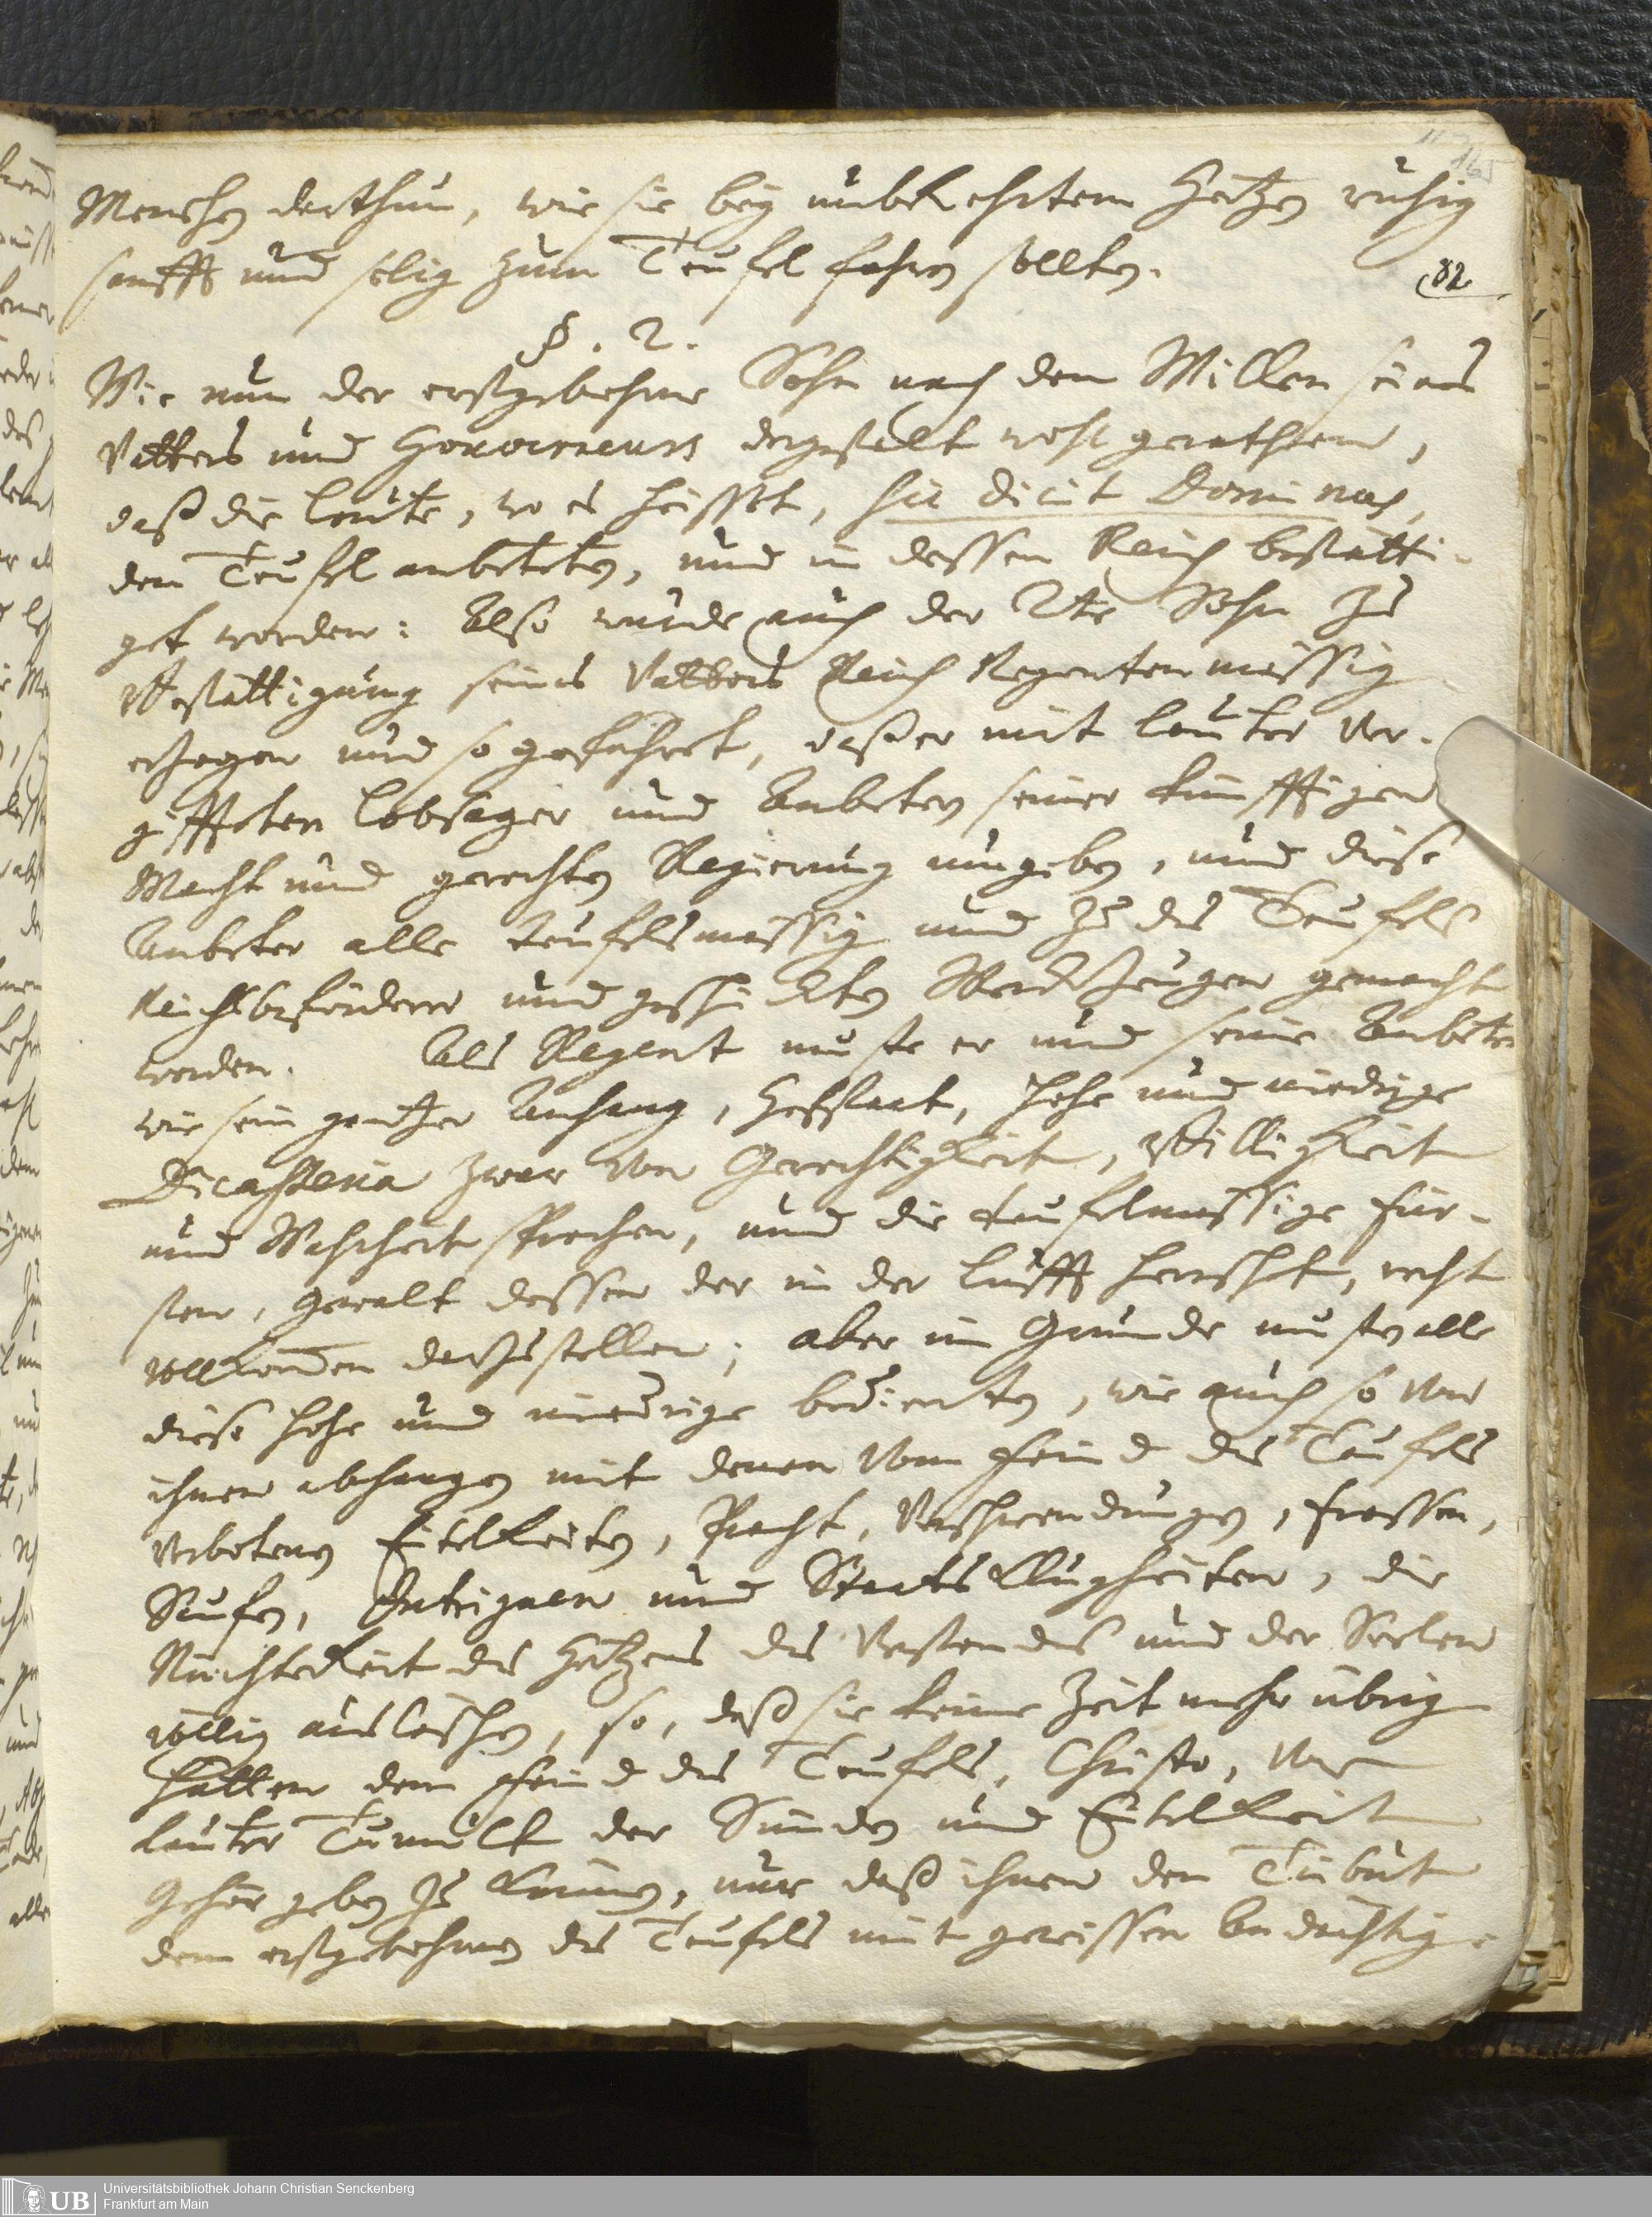 165
Menschen darthun, wie sie bey unbekehrtem Hertzen ruhig
sanfft und selig zum Teufel fahren sollten.
82
§. 2.
Wie nun der erstgebohrne Sohn nach dem Willen seines
Vatters und Gouverneurs dergestalt wohl gerathen,
daß die Leute, wo es heisset, sic dicit Dominus,
den Teufel anbeteten, und in dessen Reich bestätti-
get worden: Also wurde auch der 2te Sohn zu
Bestättigung seines Vatters Reich Regentenmässig
erzogen und so geführet, daß er mit lauter ver-
giffteten Lobsager und Anbeten seiner künfftigen
Macht und gerechten Regierung umgeben, und diese
Anbeter alle teufelsmässig und zu des Teufels
Reichsbeförderer und geschickten Werckzeugen gemacht
worden. Als Regent muste er und seine Anbeter
wie sein gantzer Anhang, Hofstaat, hohe und niedrige
Dicasteria zwar von Gerechtigkeit, Billigkeit
und Wahrheit sprechen, und die teufelmässige Für-
sten, Gewalt dessen der in der Lufft herrschet, recht
vollkommen darzustellen; aber im Grunde musten alle
diese hohe und niedrige bedienten, wie auch so von
ihnen abhangen mit denen vom Feind des Teufels
verbotenen Eitelkeiten, Pracht, Verschwendungen, Fressen,
Saufen, Intriguen und Staats Klugheiten, die
Nüchterkeit des Hertzens des Verstandes und der Seelen
völlig auslöschen, so, daß sie keine Zeit mehr übrig
hatten dem Feind des Teufels, Christo, vor
lauter Tumult der Sünden und Eitelkeit
Gehör geben zu können, nur daß ihnen den Tribut
dem erstgebohrnen des Teufels mit gewissen andächtig-
UB
Universitätsbibliothek Johann Christian Senckenberg
Frankfurt am Main